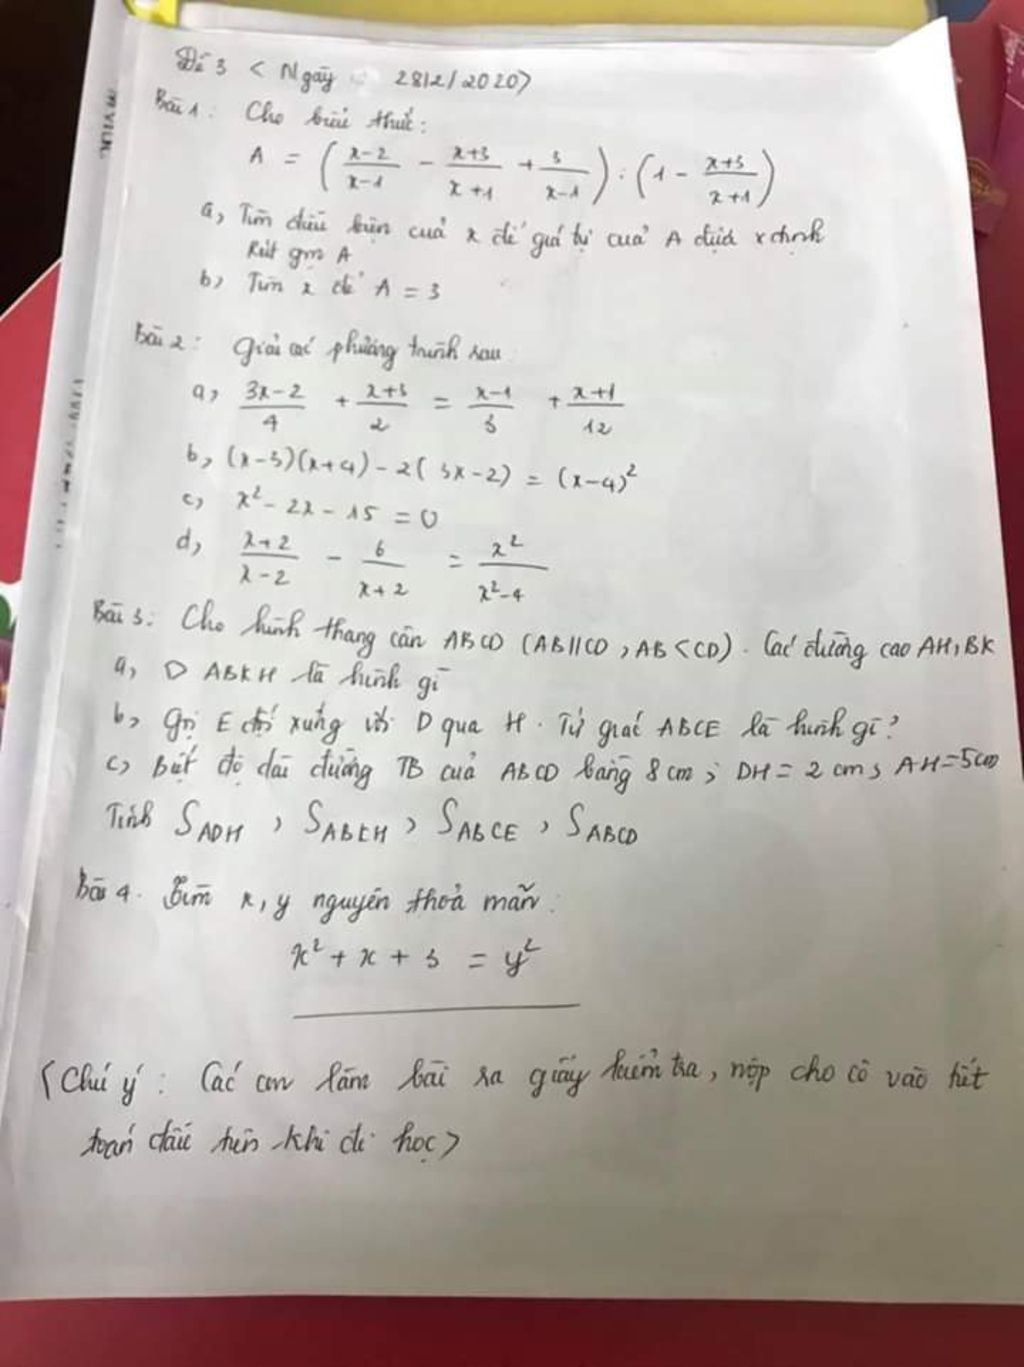 Đề 3 < Ngày 28/2/2020>
Bài 1: Cho biểu thức:
A = (\frac{x-2}{x-1} - \frac{x+3}{x+1} + \frac{3}{x-1}) : (1 - \frac{x+3}{x+1})
a, Tìm điều kiện của x để giá trị của A được x định
Rút gọn A
b, Tìm x để A = 3
Bài 2: Giải các phương trình sau
a, \frac{3x-2}{4} + \frac{x+3}{2} = \frac{x-1}{3} + \frac{x+1}{12}
b, (x-3)(x+4) - 2(3x-2) = (x-4)²
c, x² - 2x - 15 = 0
d, \frac{x+2}{x-2} - \frac{6}{x+2} = \frac{x²}{x²-4}
Bài 3: Cho hình thang cân ABCD (AB//CD, AB<CD). Các đường cao AH, BK
a, ABKH là hình gì
b, Gọi E đối xứng với D qua H. Tứ giác ABCE là hình gì?
c, Biết độ dài đường TB của ABCD bằng 8 cm; DH = 2 cm; AH=5cm
Tính S_{ADH}, S_{ABKH}, S_{ABCE}, S_{ABCD}
Bài 4. Tìm x, y nguyên thoả mãn:
x² + x + 3 = y²
(Chú ý: Các con làm bài ra giấy kiểm tra, nộp cho cô vào tiết
toán đầu tiên khi đi học>